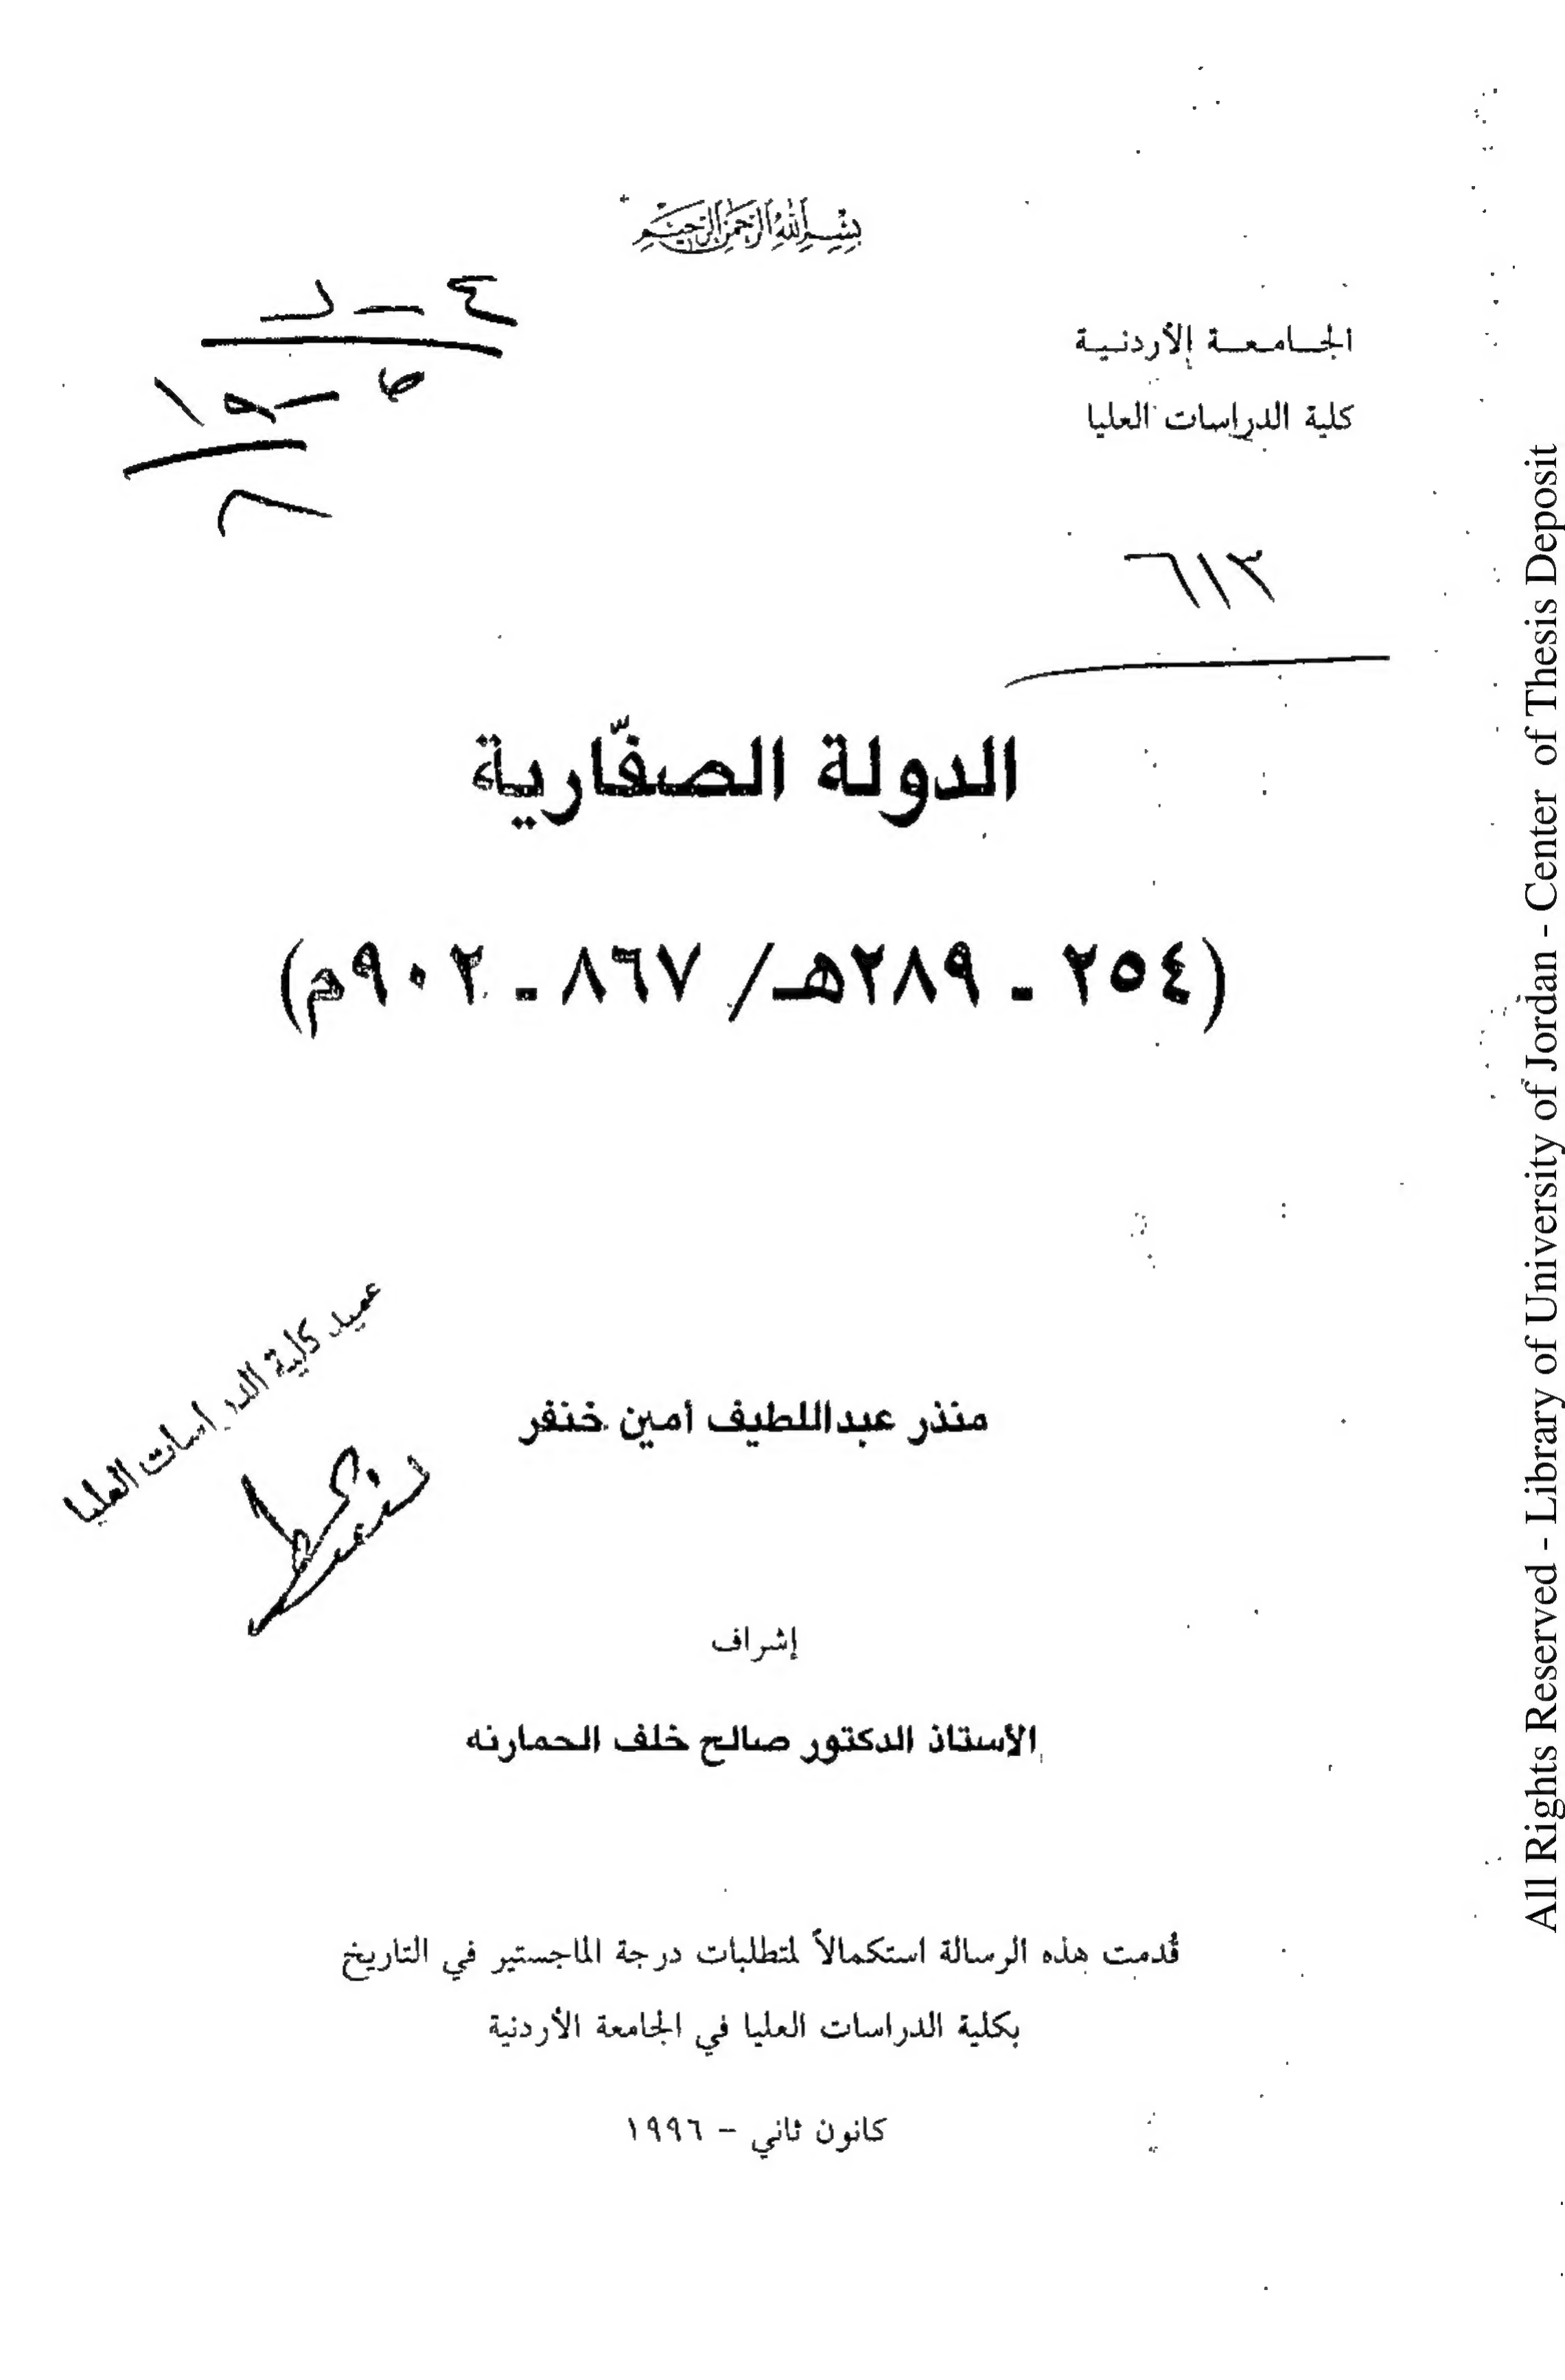 بسم الله الرحمن الرحيم
الجامعة الأردنية
كلية الدراسات العليا
٦١٣
الدولة الصفّارية
(٢٥٤ - ٢٨٩هـ/ ٨٦٧ - ٩٠٢م)
منذر عبداللطيف أمين خنفر
عميد كلية الدراسات العليا
إشراف
الأستاذ الدكتور صالح خلف الحمارنه
قُدمت هذه الرسالة استكمالاً لمتطلبات درجة الماجستير في التاريخ
بكلية الدراسات العليا في الجامعة الأردنية
كانون ثاني - ١٩٩٦
All Rights Reserved - Library of University of Jordan - Center of Thesis Deposit